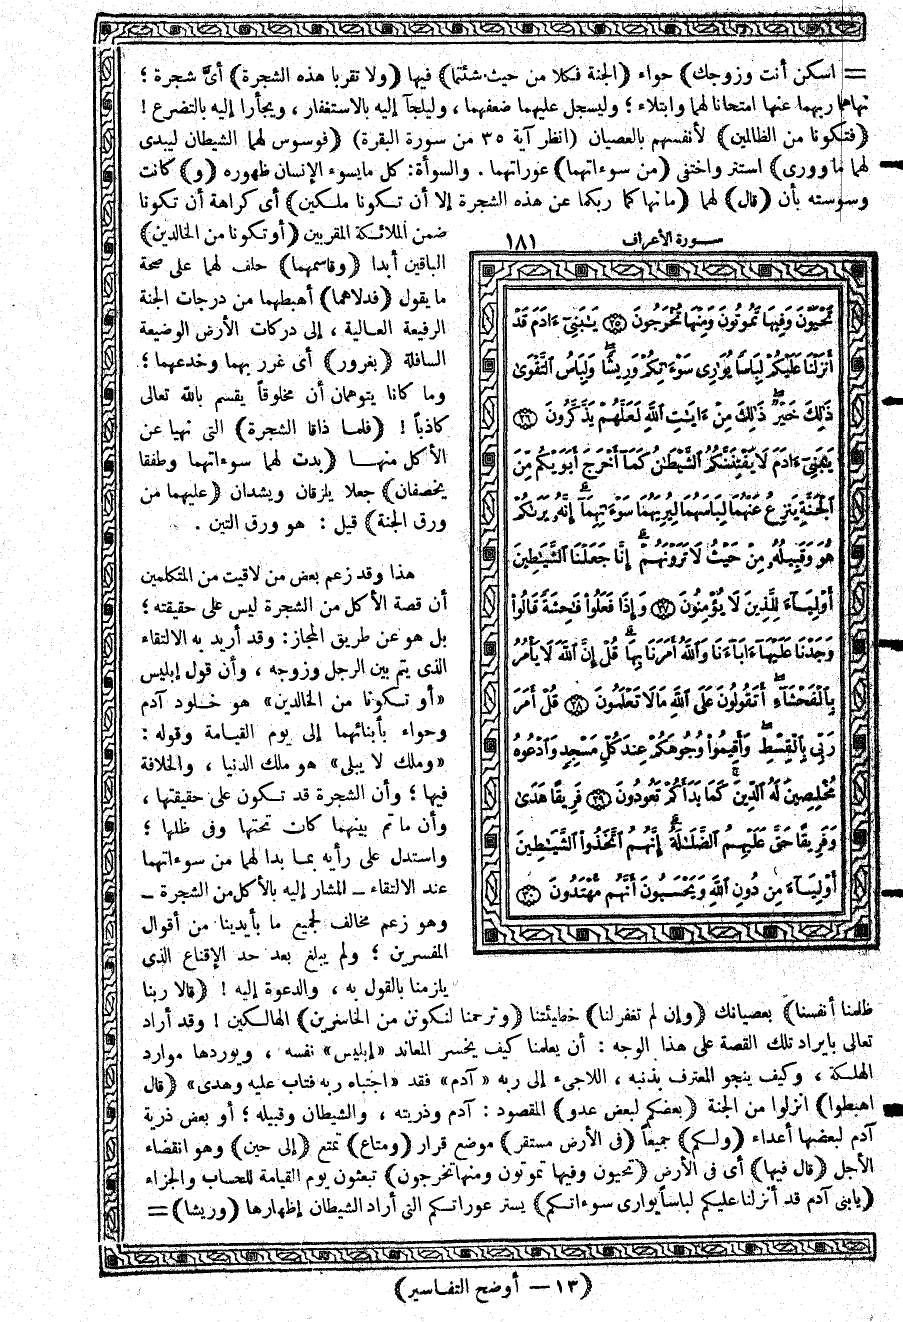 = اسكن أنت وزوجك) حواء (الجنة فكلا من حيث شئتما) فيها (ولا تقربا هذه الشجرة) أى شجرة ؛
نهاهما ربهما عنها امتحانا لهما وابتلاء ؛ وليسجل عليهما ضعفهما ، وليلجآ إليه بالاستغفار ، ويجأرا إليه بالتضرع !
(فتكونا من الظالمين) لأنفسهم بالعصيان (انظر آية ٣٥ من سورة البقرة) (فوسوس لهما الشيطان ليبدى
لهما ماوورى) استتر واختفى (من سوءاتهما) عوراتهما . والسوأة: كل مايسوء الإنسان ظهوره (و) كانت
وسوسته بأن (قال) لهما (مانهاكما ربكما عن هذه الشجرة إلا أن تكونا ملكين) أى كراهة أن تكونا
ضمن الملائكة المقربين (أوتكونا من الخالدين)
الباقين أبدا (وقاسمهما) حلف لهما على صحة
ما يقول (فدلاهما) أهبطهما من درجات الجنة
الرفيعة العالية ، إلى دركات الأرض الوضيعة
السافلة (بغرور) أى غرر بهما وخدعهما ؛
وما كانا يتوهمان أن مخلوقاً يقسم بالله تعالى
كاذباً ! (فلما ذاقا الشجرة) التى نهيا عن
الأكل منها (بدت لهما سوءاتهما وطفقا
يخصفان) جعلا يلزقان ويشدان (عليهما من
ورق الجنة) قيل : هو ورق التين .
هذا وقد زعم بعض من لاقيت من المتكلمين
أن قصة الأكل من الشجرة ليس على حقيقته ؛
بل هو عن طريق المجاز: وقد أريد به الالتقاء
الذى يتم بين الرجل وزوجه ، وأن قول إبليس
«أو تكونا من الخالدين» هو خلود آدم
وحواء بأبنائهما إلى يوم القيامة وقوله :
«وملك لا يبلى» هو ملك الدنيا ، والخلافة
فيها ؛ وأن الشجرة قد تكون على حقيقتها ،
وأن ماتم بينهما كان تحتها وفى ظلها ؛
واستدل على رأيه بما بدا لهما من سوءاتهما
عند الالتقاء ــ المشار إليه بالأكل من الشجرة ــ
وهو زعم مخالف لجميع ما بأيدينا من أقوال
المفسرين ؛ ولم يبلغ بعد حد الإقناع الذى
يلزمنا بالقول به ، والدعوة إليه ! (قالا ربنا
سورة الأعراف ١٨١
تَحْيَوْنَ وَفِيهَا تَمُوتُونَ وَمِنْهَا تُخْرَجُونَ ﴿٢٥﴾ يَـٰبَنِىٓ ءَادَمَ قَدْ
أَنزَلْنَا عَلَيْكُمْ لِبَاسًا يُوَٰرِى سَوْءَٰتِكُمْ وَرِيشًا ۖ وَلِبَاسُ ٱلتَّقْوَىٰ
ذَٰلِكَ خَيْرٌ ۚ ذَٰلِكَ مِنْ ءَايَـٰتِ ٱللَّهِ لَعَلَّهُمْ يَذَّكَّرُونَ ﴿٢٦﴾
يَـٰبَنِىٓ ءَادَمَ لَا يَفْتِنَنَّكُمُ ٱلشَّيْطَـٰنُ كَمَآ أَخْرَجَ أَبَوَيْكُم مِّنَ
ٱلْجَنَّةِ يَنزِعُ عَنْهُمَا لِبَاسَهُمَا لِيُرِيَهُمَا سَوْءَٰتِهِمَآ ۗ إِنَّهُۥ يَرَىٰكُمْ
هُوَ وَقَبِيلُهُۥ مِنْ حَيْثُ لَا تَرَوْنَهُمْ ۗ إِنَّا جَعَلْنَا ٱلشَّيَـٰطِينَ
أَوْلِيَآءَ لِلَّذِينَ لَا يُؤْمِنُونَ ﴿٢٧﴾ وَإِذَا فَعَلُوا۟ فَـٰحِشَةً قَالُوا۟
وَجَدْنَا عَلَيْهَآ ءَابَآءَنَا وَٱللَّهُ أَمَرَنَا بِهَا ۗ قُلْ إِنَّ ٱللَّهَ لَا يَأْمُرُ
بِٱلْفَحْشَآءِ ۖ أَتَقُولُونَ عَلَى ٱللَّهِ مَا لَا تَعْلَمُونَ ﴿٢٨﴾ قُلْ أَمَرَ
رَبِّى بِٱلْقِسْطِ ۖ وَأَقِيمُوا۟ وُجُوهَكُمْ عِندَ كُلِّ مَسْجِدٍ وَٱدْعُوهُ
مُخْلِصِينَ لَهُ ٱلدِّينَ ۚ كَمَا بَدَأَكُمْ تَعُودُونَ ﴿٢٩﴾ فَرِيقًا هَدَىٰ
وَفَرِيقًا حَقَّ عَلَيْهِمُ ٱلضَّلَـٰلَةُ ۗ إِنَّهُمُ ٱتَّخَذُوا۟ ٱلشَّيَـٰطِينَ
أَوْلِيَآءَ مِن دُونِ ٱللَّهِ وَيَحْسَبُونَ أَنَّهُم مُّهْتَدُونَ ﴿٣٠﴾
ظلمنا أنفسنا) بعصيانك (وإن لم تغفر لنا) خطيئتنا (وترحمنا لنكونن من الخاسرين) الهالكين ! وقد أراد
تعالى بايراد تلك القصة على هذا الوجه : أن يعلمنا كيف يخسر المعاند «إبليس» نفسه ، ويوردها موارد
الهلكة ، وكيف ينجو المعترف بذنبه ، اللاجىء إلى ربه « آدم» فقد «اجتباه ربه فتاب عليه وهدى» (قال
اهبطوا) انزلوا من الجنة (بعضكم لبعض عدو) المقصود : آدم وذريته ، والشيطان وقبيله ؛ أو بعض ذرية
آدم لبعضها أعداء (ولكم) جميعاً (فى الأرض مستقر) موضع قرار (ومتاع) تمتع (إلى حين) وهو انقضاء
الأجل (قال فيها) أى فى الأرض (تحيون وفيها تموتون ومنها تخرجون) تبعثون يوم القيامة للحساب والجزاء
(يابنى آدم قد أنزلنا عليكم لباساً يوارى سوءاتكم) يستر عوراتكم التى أراد الشيطان إظهارها (وريشا) =
(١٣ — أوضح التفاسير)